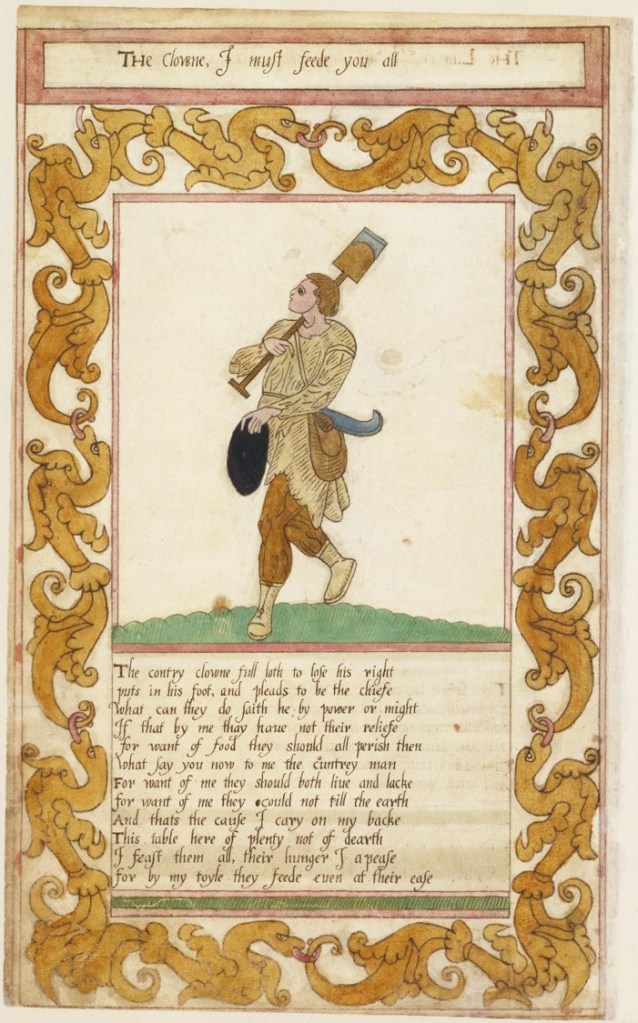 THE Clowne, I must feede you all
The contry clowne full loth to lose his right
puts in his foot, and pleads to be the chiefe
What can they do saith he by power or might
If that by me thay haue not their reliefe
for want of food they should all perish then
What say you now to me the cuntrey man
For want of me they should both liue and lacke
for want of me they could not till the earth
And thats the cause I cary on my backe
This table here of plenty not of dearth
I feast them all, their hunger I apease
for by my toyle they feede euen at their ease